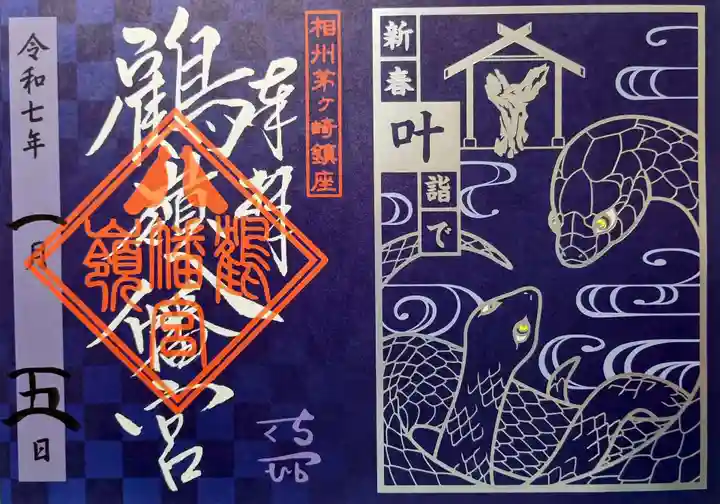 新春
叶
詣で
相州茅ヶ崎鎮座
奉拝
鶴嶺八幡宮
鶴
八幡宮
嶺
令和七年
一月
五日